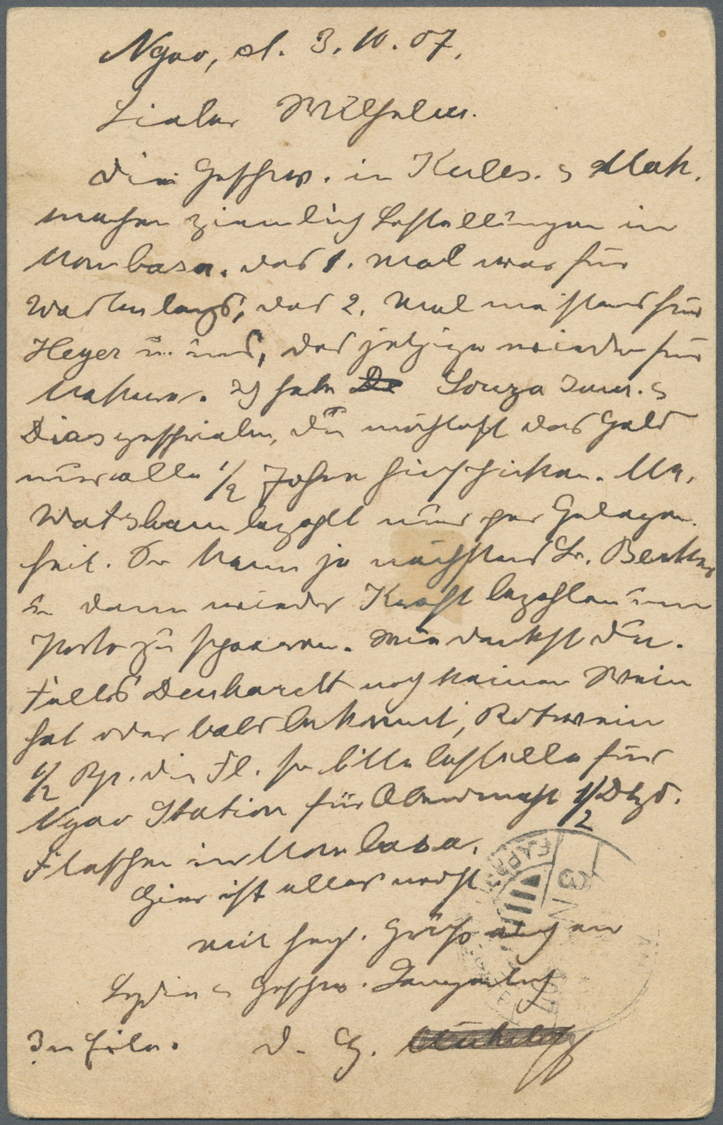 Ngao, d. 3.10.07.
Lieber Wilhelm.
Die Geschw. in Kules. & Mak.
machen ziemlich Bestellungen in
Mombasa. das 1. mal war für
das 2. mal meistens für
Heyer u. uns, das jetzige wieder für
Ich habe Souza Jun. &
Dias geschrieben, Du möchtest das Geld
nur alle 1/2 Jahre hinschicken. Mr.
bezahlt nur per Gelegen-
heit. Er kann ja nächstens Br. Becker
& dann wieder Kraft bezahlen um
Porto zu sparen. Wie denkst Du.
Falls Denhardt noch keinen Wein
hat oder bald bekommt, Rotwein
1/2 Rp. die Fl. so bitte bestelle für
Ngao Station für Abendmahl 1/2 Dtzd.
Flaschen in Mombasa.
Hier ist alles wohl
mit herzl. Grüßen
Lydia & Geschw.
In Eile. D. H.